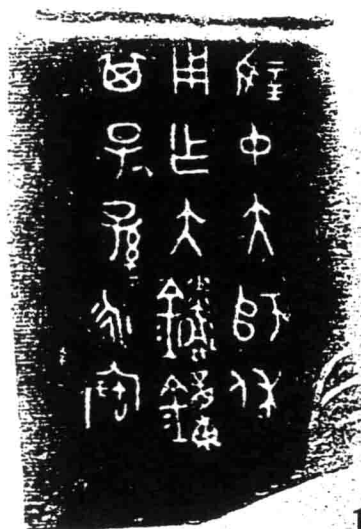 中大師休
用乍大鐘
其子孫永寶